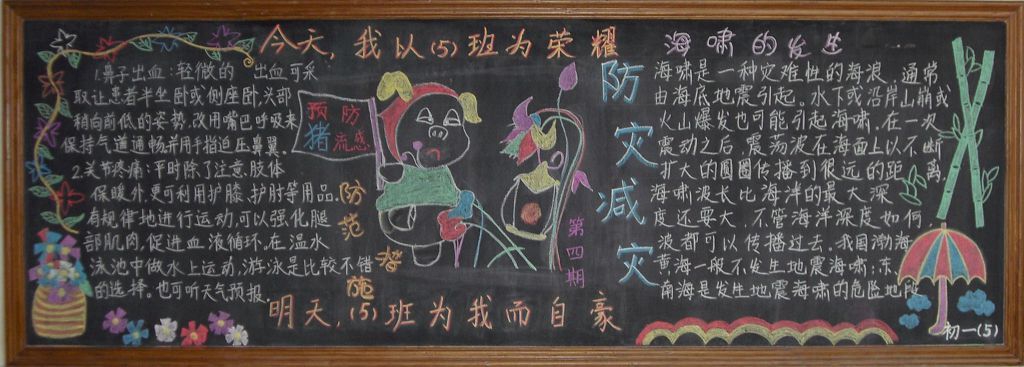 今天,我以(5)班为荣耀
1.鼻子出血:轻微的 出血可采
取让患者半坐卧或侧座卧,头部
稍向前低的姿势,改用嘴巴呼吸来
保持气道通畅并用手指迫压鼻翼.
2.关节疼痛:平时除了注意肢体
保暖外,更可利用护膝,护肘等用品.
有规律地进行运动,可以强化腿
部肌肉,促进血液循环.在温水
泳池中做水上运动,游泳是比较不错
的选择。也可听天气预报.
预防
猪流感
防范措施
第四期
明天,(5)班为我而自豪
防灾减灾
海啸的发生
海啸是一种灾难性的海浪,通常
由海底地震引起。水下或沿岸山崩或
火山爆发也可能引起海啸.在一次
震动之后,震荡波在海面上以不断
扩大的圆圈传播到很远的距离,
海啸波长比海洋的最大深
度还要大,不管海洋深度如何
波都可以传播过去.我国渤海
黄海一般不发生地震海啸;东、
南海是发生地震海啸的危险地段
初一(5)